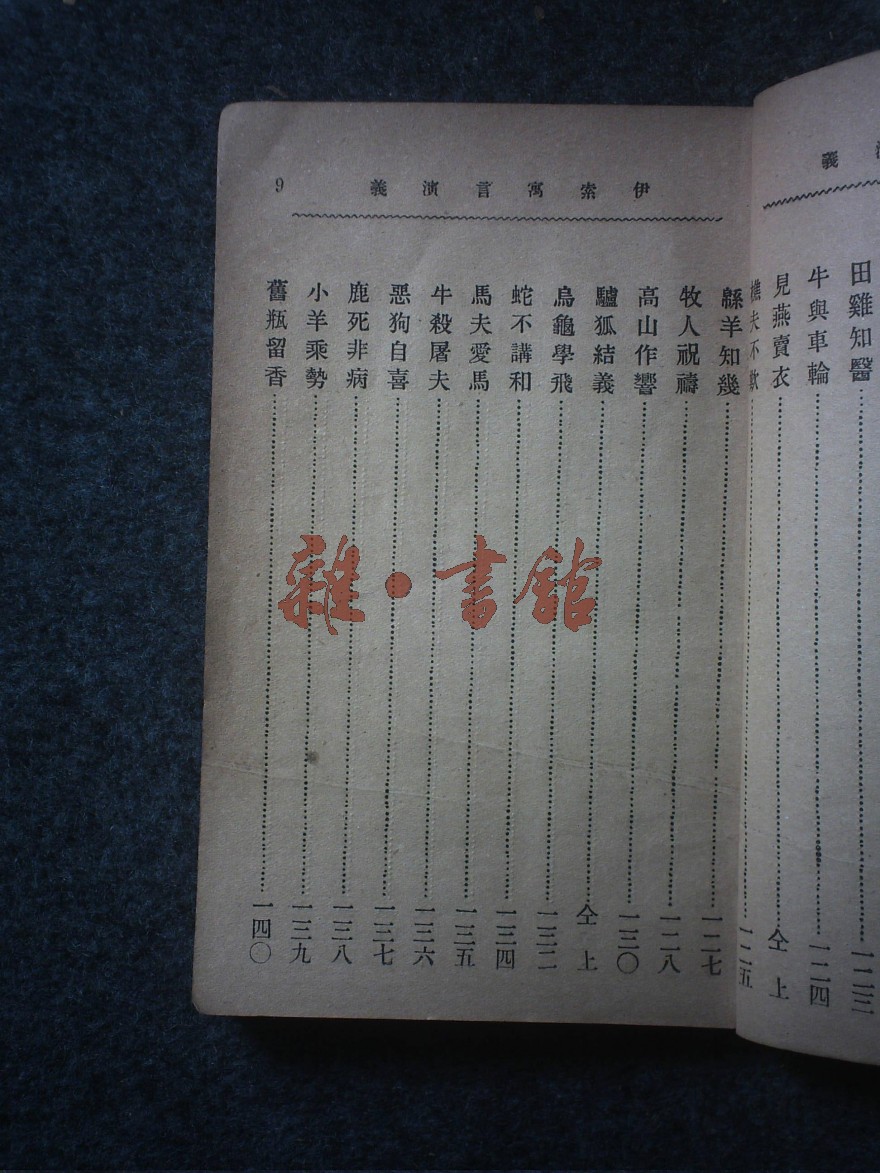 義
田雞知醫 一二三
牛與車輪 一二四
見燕賣衣 仝上
夫不 一二五
伊索寓言演義 9
緜羊知幾 一二七
牧人祝禱 一二八
高山作響 一三〇
驢狐結義 仝上
烏龜學飛 一三二
蛇不講和 一三四
馬夫愛馬 一三五
牛殺屠夫 一三六
惡狗自喜 一三七
鹿死非病 一三八
小羊乘勢 一三九
舊瓶留香 一四〇
雜·書館